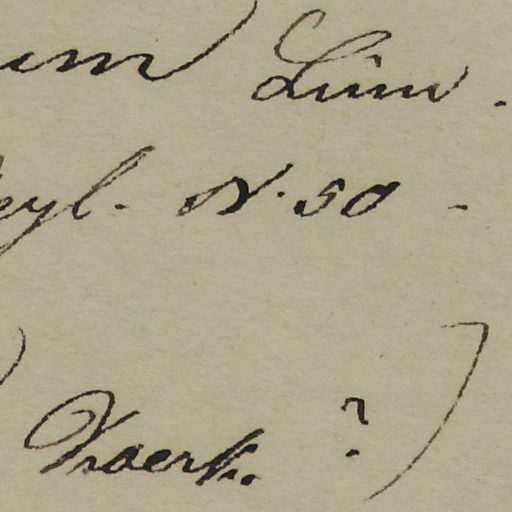 um Linn.
eyl. N. 50 -
Koerk. ?)